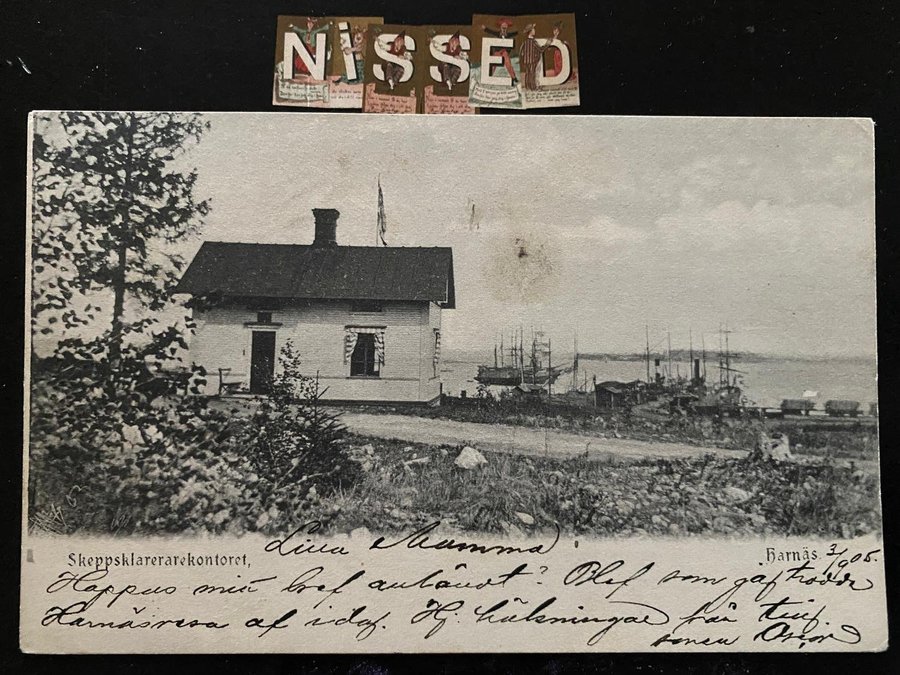 NiSSED
Skeppsklarerarekontoret,
Harnäs. 3/9 05.
Mamma
Hoppas min bref anländt? Blef som jag trodde
Harnäsresa af idag. Hj. hälsningar från
sonen Oscar